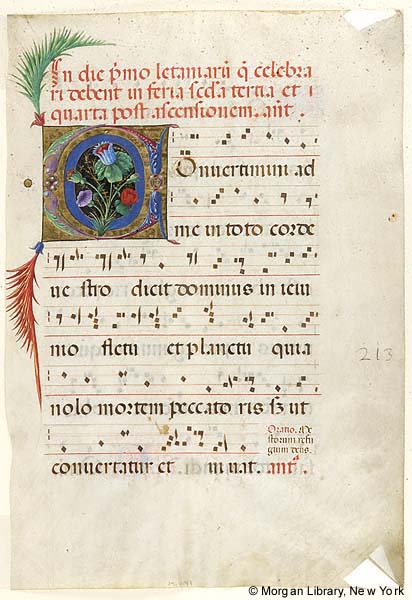 In die p̄mo letaniarū q̄ celebra
ri debent in feria scd̄a tertia et i
quarta post ascensionem. an̄t.
Onvertimini ad
me in toto corde
ve stro dicit dominus in ieiu
nio fletu et planctu quia
nolo mortem peccato ris sꝫ ut
Oratio.
convertatur et vivat. ant̄
213
© Morgan Library, New York